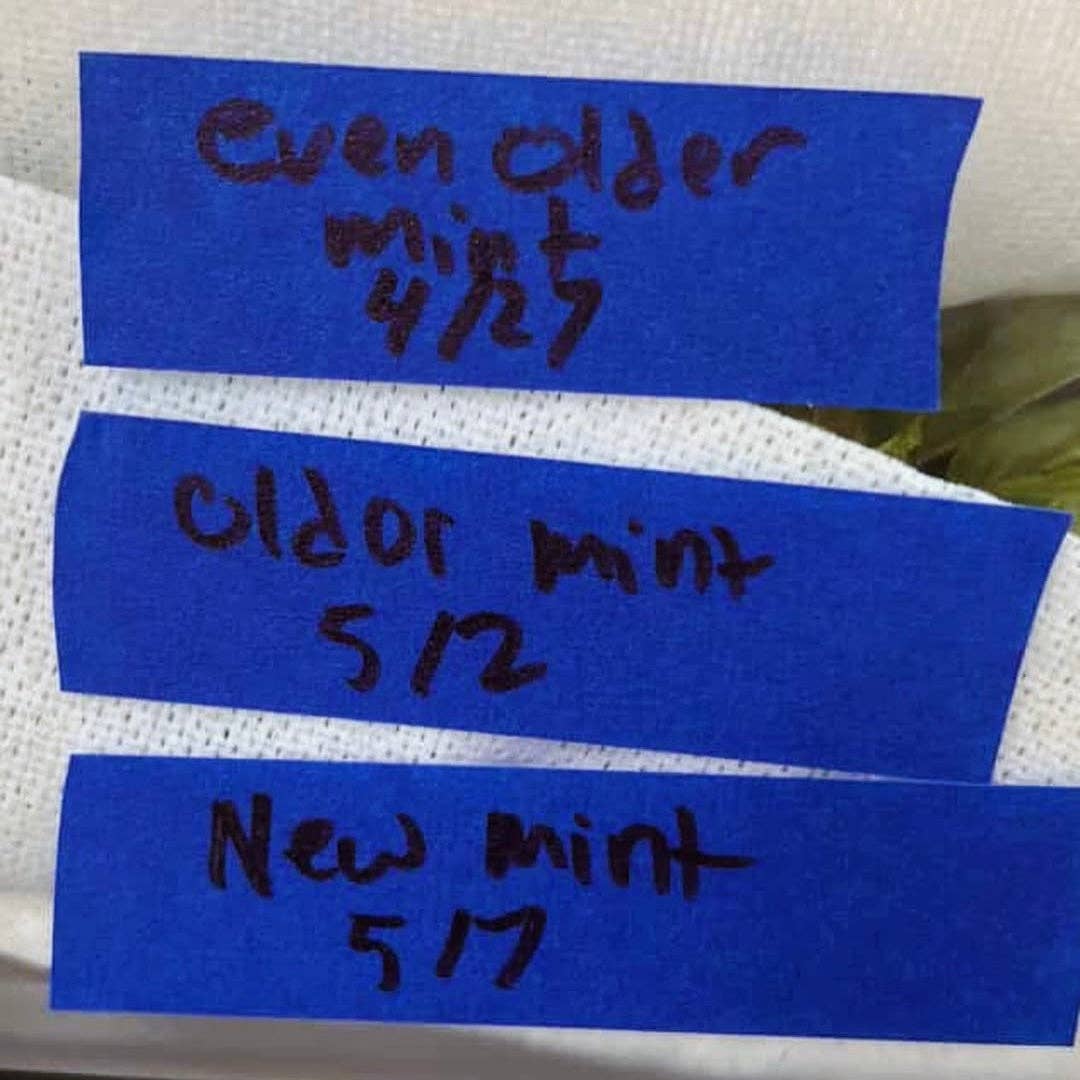 Even older
mint
4/27
Older mint
5/2
New mint
5/7